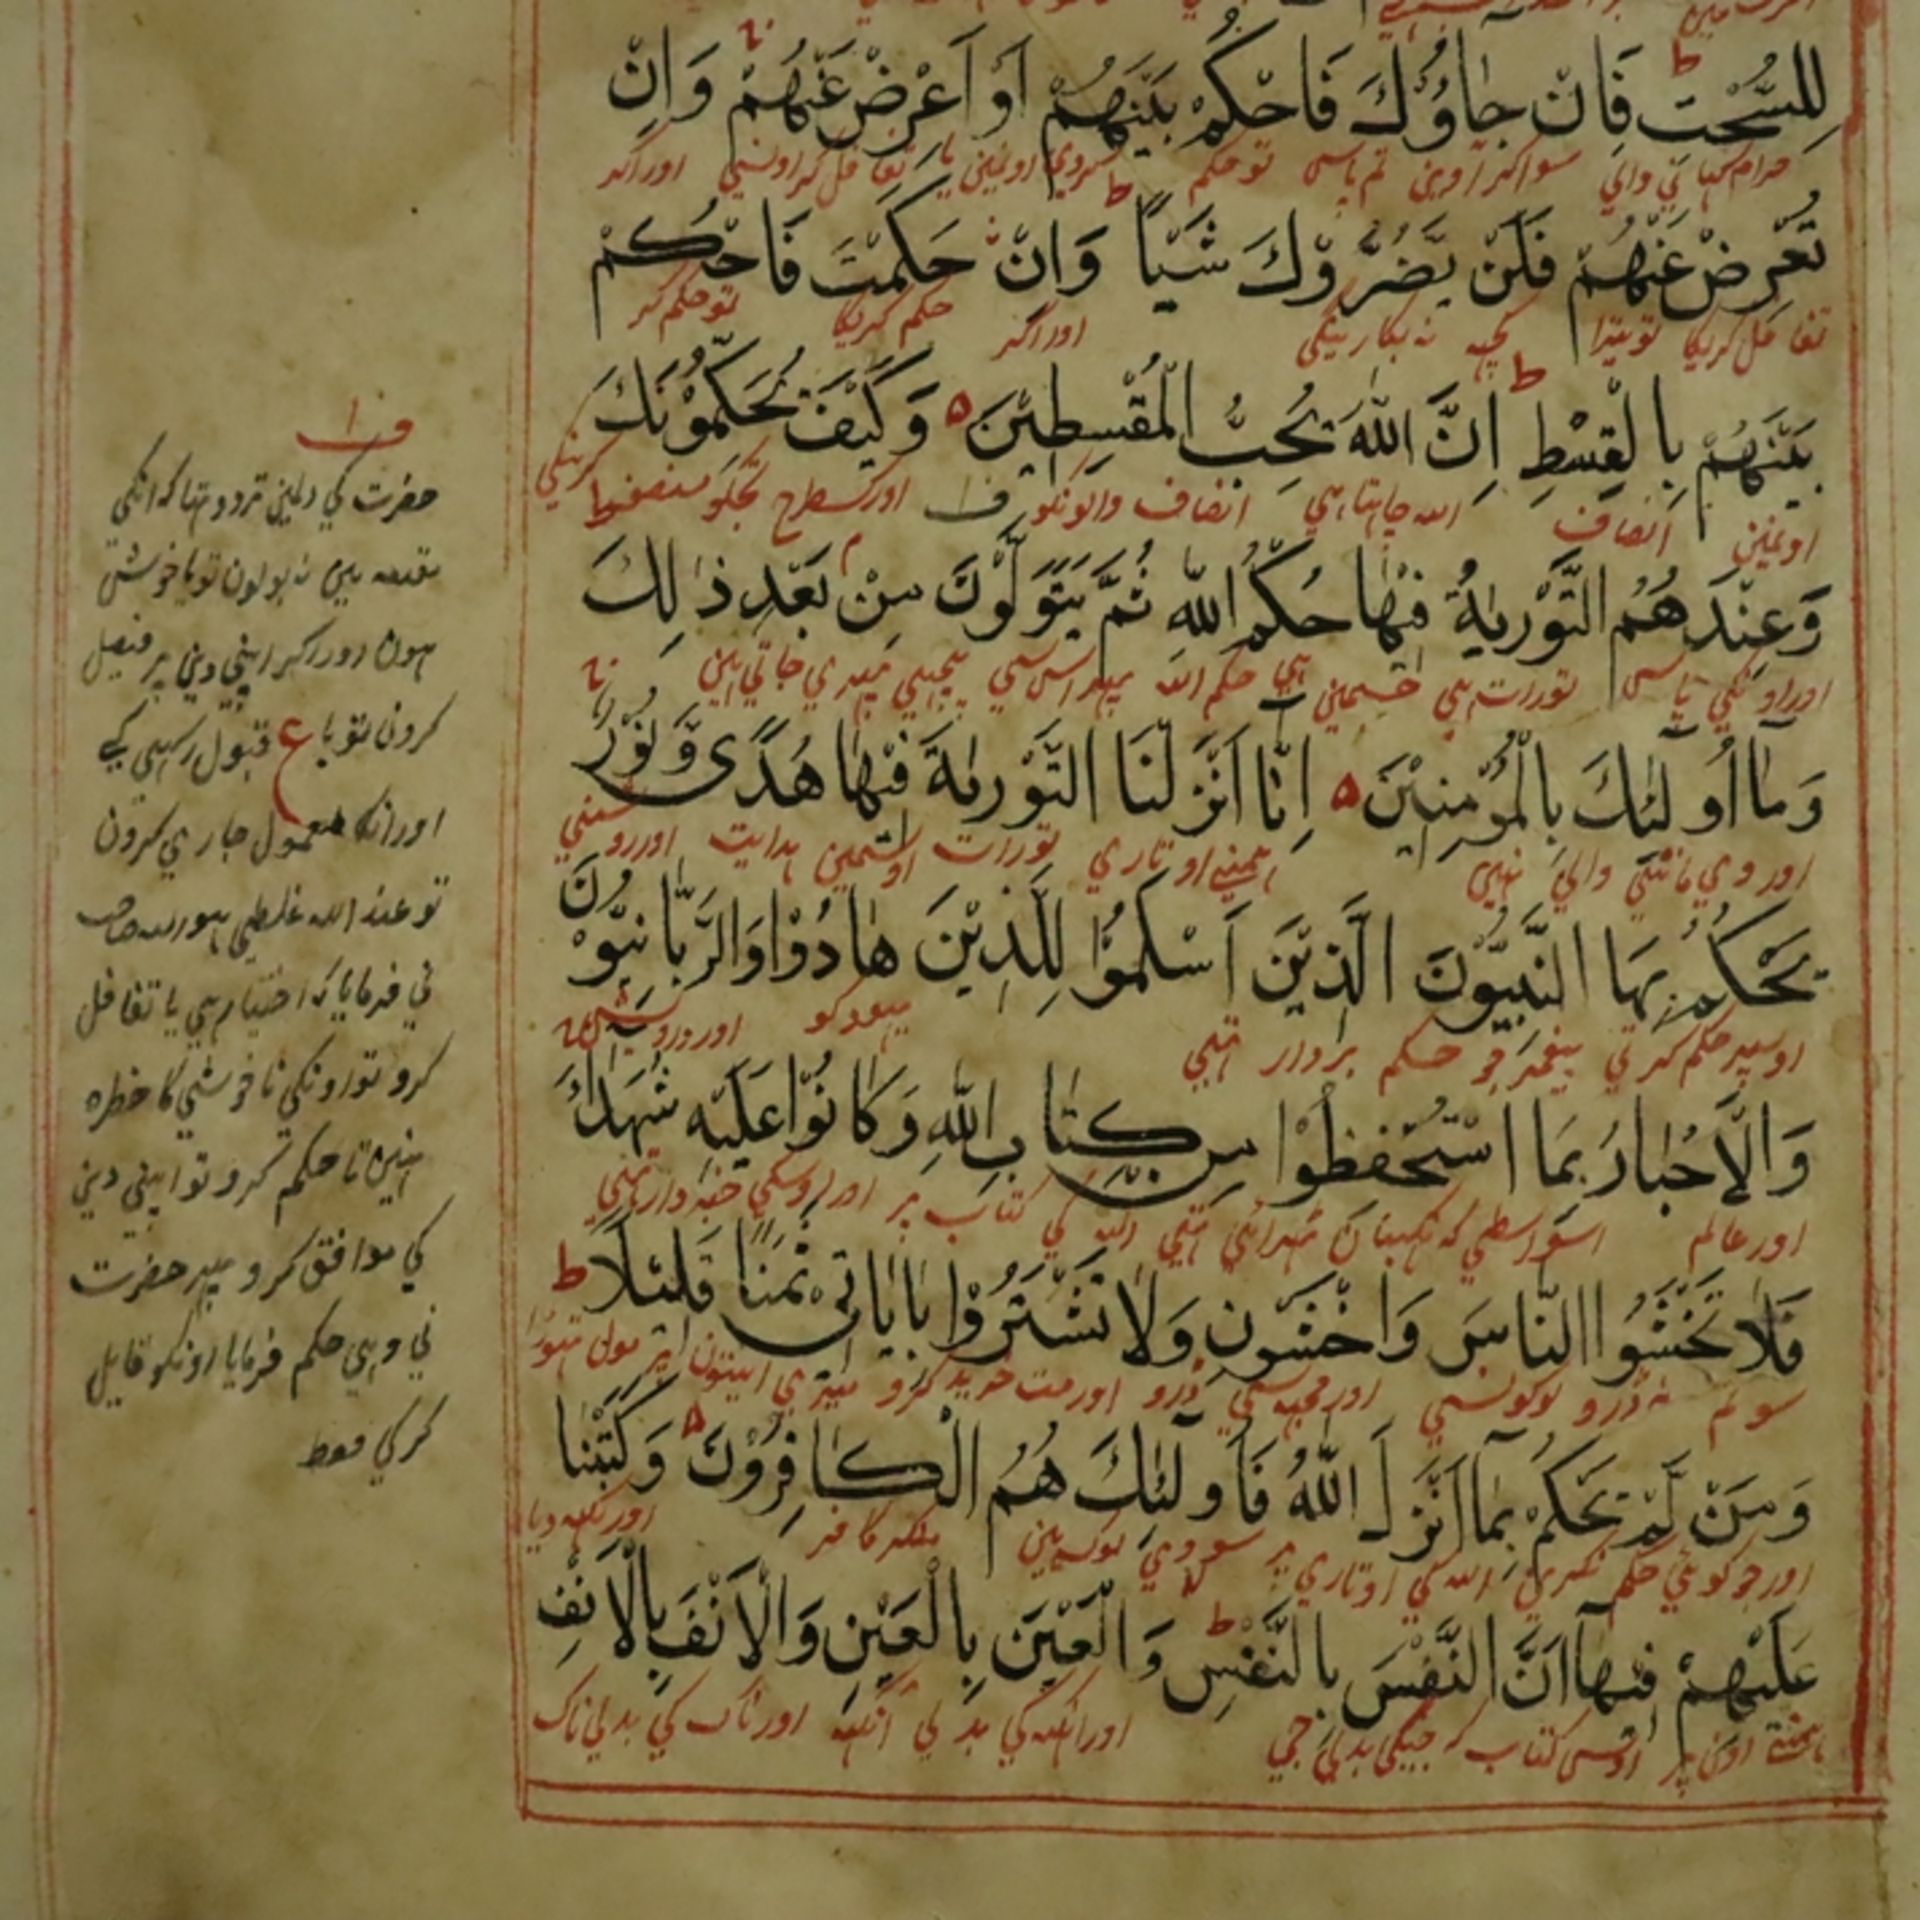 لِلسُّحْتِ فَاِنْ جَاؤُكَ فَاحْكُمْ بَيْنَهُمْ اَوْ اَعْرِضْ عَنْهُمْ وَاِنْ
حرام کہانی والی سو اکر آوین تم پاس تو حکم کردی اونمین یا تغافل کر اونسی اور اگر
تُعْرِضْ عَنْهُمْ فَلَنْ يَّضُرُّوْكَ شَيْاً وَاِنْ حَكَمْتَ فَاحْكُمْ
تغافل کریکا تو تیرا کچہہ نہ بکارینکی اور اگر حکم کریکا تو حکم کر
بَيْنَهُمْ بِالْقِسْطِ اِنَّ اللّٰهَ يُحِبُّ الْمُقْسِطِيْنَ وَكَيْفَ يُحَكِّمُوْنَكَ
اونمین انصاف الله چاہتا ہی انصاف والونکو ف۱ اور کسطرح تجکو منصف کرینکی
وَعِنْدَهُمُ التَّوْرٰيةُ فِيْهَا حُكْمُ اللّٰهِ ثُمَّ يَتَوَلَّوْنَ مِنْ بَعْدِ ذٰلِكَ
اور اونکی پاس تورات ہی جسمین ہی حکم الله پہر اس سی پیچہی پہری جاتی ہین
وَمَا اُولٰئِكَ بِالْمُؤْمِنِيْنَ اِنَّا اَنْزَلْنَا التَّوْرٰىةَ فِيْهَا هُدًى وَّنُوْرٌ
اور وی ماننی والی نہین ہمنی اوتاری تورات اوسمین ہدایت اور روشنی
يَحْكُمُ بِهَا النَّبِيُّوْنَ الَّذِيْنَ اَسْلَمُوْا لِلَّذِيْنَ هَادُوْا وَالرَّبَّانِيُّوْنَ
اوسپر حکم کرتی پیغمبر جو حکم بردار تہی یہودکو اور درویش
وَالْاَحْبَارُ بِمَا اسْتُحْفِظُوْا مِنْ كِتَابِ اللّٰهِ وَكَانُوْا عَلَيْهِ شُهَدَاءَ
اور عالم اسواسطی کہ نکہبان ٹہرائی تہی الله کی کتاب پر اور اوسکی خبردار تہی
فَلَا تَخْشَوُا النَّاسَ وَاخْشَوْنِ وَلَا تَشْتَرُوْا بِاٰيَاتِيْ ثَمَنًا قَلِيْلًا
سو تم نہ ڈرو لوکونسی اور مجہہ سی ڈرو اور مت خرید کرو میری ایتون پر مول تہورا
وَمَنْ لَّمْ يَحْكُمْ بِمَا اَنْزَلَ اللّٰهُ فَاُولٰئِكَ هُمُ الْكَافِرُوْنَ وَكَتَبْنَا
اور جو کوئی حکم نکری الله کی اوتاری پر سو وی لوک ہین کافر اور لکہہ دیا
عَلَيْهِمْ فِيْهَا اَنَّ النَّفْسَ بِالنَّفْسِ وَالْعَيْنَ بِالْعَيْنِ وَالْاَنْفَ بِالْاَنْفِ
ہمنی اون پر اوس کتاب جیکی بدلی جی اور انکہہ کی بدلی انکہہ اور ناک کی بدلی ناک
ف۱
حضرت کی دلمین تردد تہا کہ انکی
مقدمہ مین نہ بولون تو ناخوش
ہون اور اکر اپنی دین پر فیصل
کرون تو یا ع قبول رکہی کی
اور انکا معمول جاری کرون
تو عند الله غلطی ہو الله صاحب
نی فرمایا کہ اختیار ہی یا تغافل
کرو تو اونکی ناخوشی کا خطرہ
نہین یا حکم کرو تو اپنی دین
کی موافق کرو پہر حضرت
نی وہی حکم فرمایا اونکو قایل
کرکی فقط